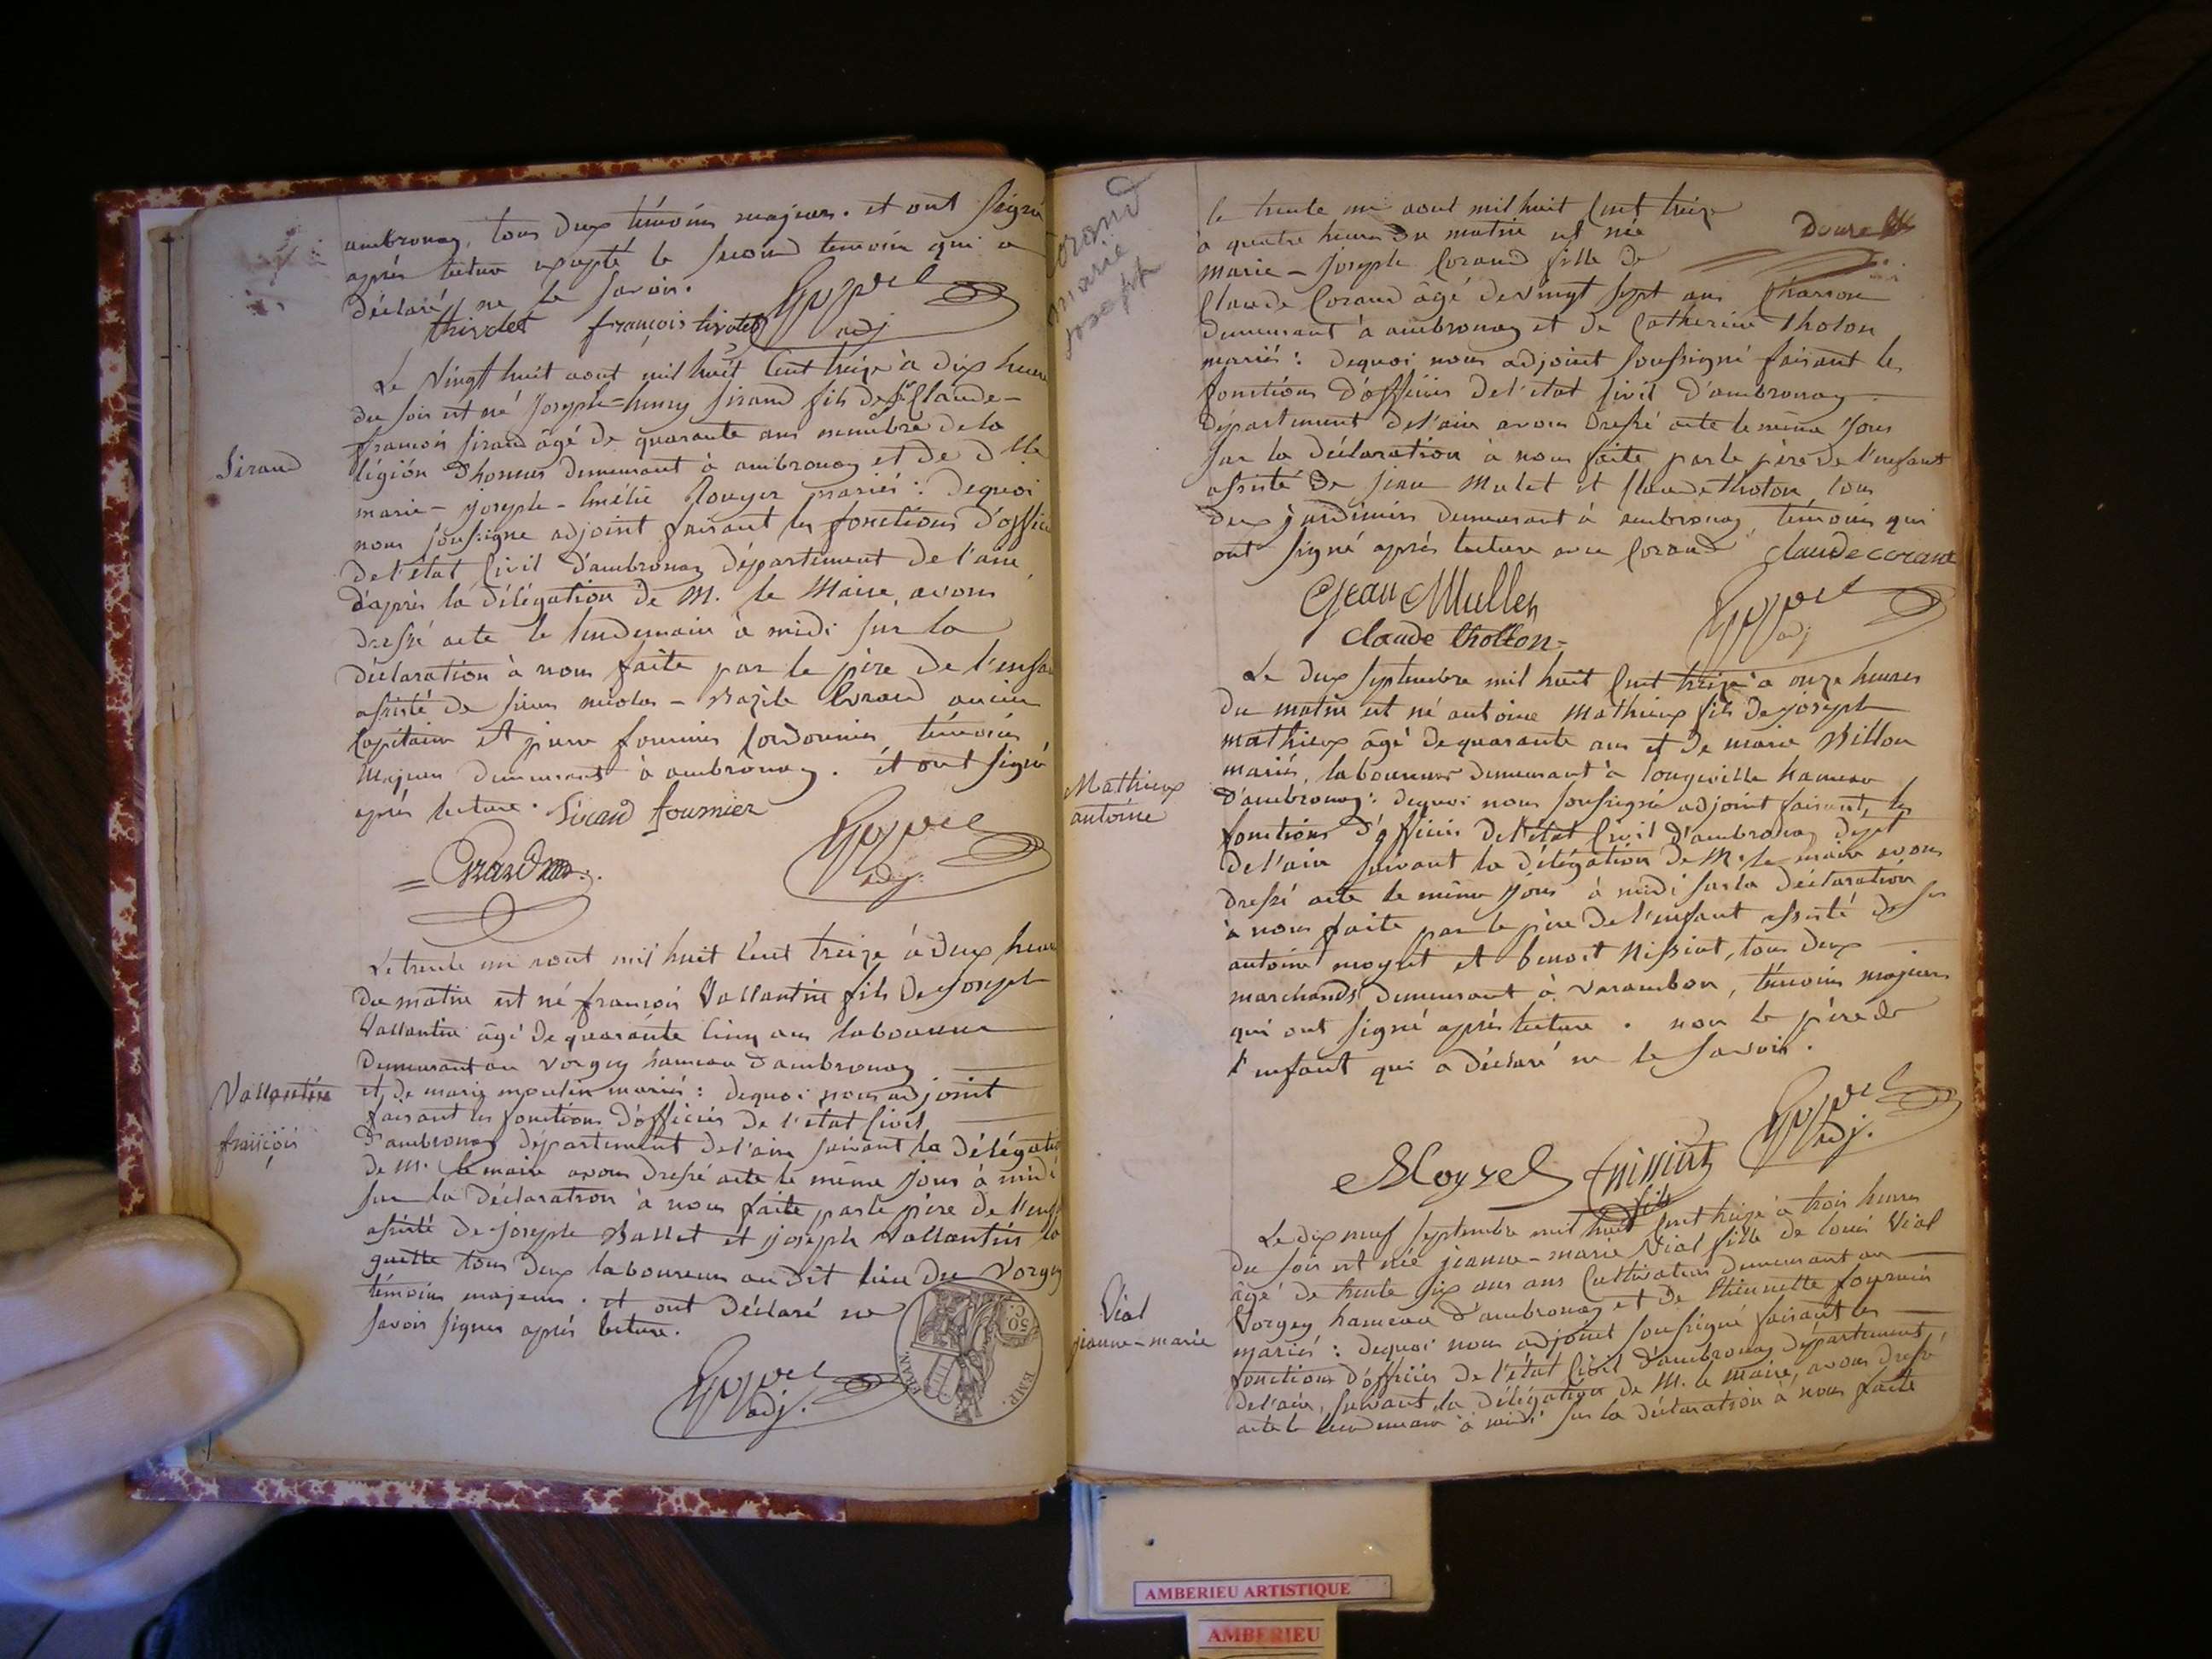 ambronay, tous deux témoins majeurs. et ont signé
après lecture excepté le second témoin qui a
déclaré ne le savoir.
thivolet françois livolet
adj
Siraud
Le vingt huit aout mil huit cent treize à dix heures
du soir est né joseph=henry siraud fils de Sr Claude-
françois siraud âgé de quarante ans membre de la
légion d'honneur demeurant à ambronay et de dlle
marie-joseph-émélie Rouyer mariés: dequoi
nous soussigné adjoint faisant les fonctions d'officier
de l'état Civil d'ambronay département de l'ain
d'après la délégation de M. le Maire, avons
dressé acte le lendemain à midi sur la
déclaration à nous faite par le père de l'enfant
assisté de sieurs nicolas-Bazile Corand ancien
Capitaine et pierre fournier Cordonnier témoins
Majeurs demeurant à ambronay. et ont signé
après lecture. Siraud fournier
adj.
Vallantin
françois
Le trente un aout mil huit Cent treize à deux heures
du matin est né françois Vallantin fils de joseph
Vallantin âgé de quarante Cinq ans laboureur
demeurant au Vorgey hameau d'ambronay
et de marie moulin mariés: dequoi nous adjoint
faisant les fonctions d'officier de l'état Civil
d'ambronay département de l'ain suivant la délégation
de M. le maire avons dressé acte le même jour à midi
sur la déclaration à nous faite par le père de l'enfant
assisté de joseph Ballet et joseph Vallantin
tous deux laboureurs audit lieu du Vorgey
témoins majeurs. et ont déclaré ne
savoir signer après lecture.
adj.
FRAN. EMP.
50 C.
Corand
marie
joseph
le trente un aout mil huit Cent treize
à quatre heures du matin est née
marie-joseph Corand fille de
Claude Corand âgé de vingt sept ans Charron
demeurant à ambronay et de Catherine tholon
mariés: dequoi nous adjoint soussigné faisant les
fonctions d'officier de l'état Civil d'ambronay
département de l'ain avons dressé acte le même jour
sur la déclaration à nous faite par le père de l'enfant
assisté de jean Mulet et Claude tholon, tous
deux jardiniers demeurant à ambronay, témoins qui
ont signé après lecture avec Corand claude corand
Jean Mullet
claude thollon
adj
Mathieux
antoine
Le deux septembre mil huit Cent treize à onze heures
du matin est né antoine Mathieux fils de joseph
mathieux âgé de quarante ans et de marie Billon
mariés, laboureurs demeurant à longeville hameau
d'ambronay: dequoi nous soussigné adjoint faisant les
fonctions d'officier de l'état Civil d'ambronay dept
de l'ain suivant la délégation de M. le maire avons
dressé acte le même jour à midi sur la déclaration
à nous faite par le père de l'enfant assisté de
antoine moyret et benoit Nissiat, tous deux
marchands demeurant à varambon, témoins majeurs
qui ont signé après lecture. non le père de
l'enfant qui a déclaré ne le savoir.
adj.
Moyret
fils
Vial
jeanne-marie
Le dix neuf septembre mil huit Cent treize à trois heures
du soir est née jeanne-marie Vial fille de louis Vial
âgé de trente six ans ans Cultivateur demeurant au
Vorgey hameau d'ambronay et de Etiennette fournier
mariés: dequoi nous adjoint soussigné faisant les
fonctions d'officier de l'état Civil d'ambronay département
de l'ain, suivant la délégation de M. le maire, avons dressé
acte le lendemain à midi sur la déclaration à nous faite
AMBERIEU ARTISTIQUE
AMBERIEU